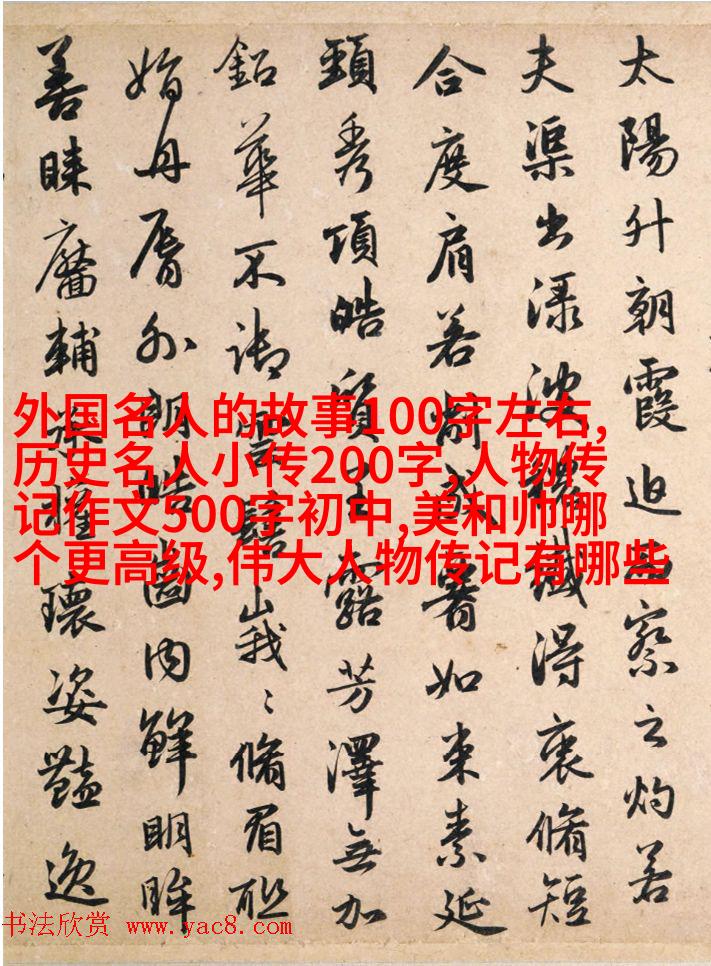 太陽升朝霞迫而察之灼若
夫渠出渌波穠纖得衷脩短
合度肩若削成如束素延
頸秀項皓質呈露芳澤無加
鉛華不御雲髻峩〻脩眉聯
娟丹脣外朗皓齒内鮮明眸
善睞靨輔承權瓌姿豔逸
外国名人的故事100字左右,
历史名人小传200字,人物传
记作文500字初中,美和帅哪
个更高级,伟大人物传记有哪些
书法欣赏 www.yac8.com